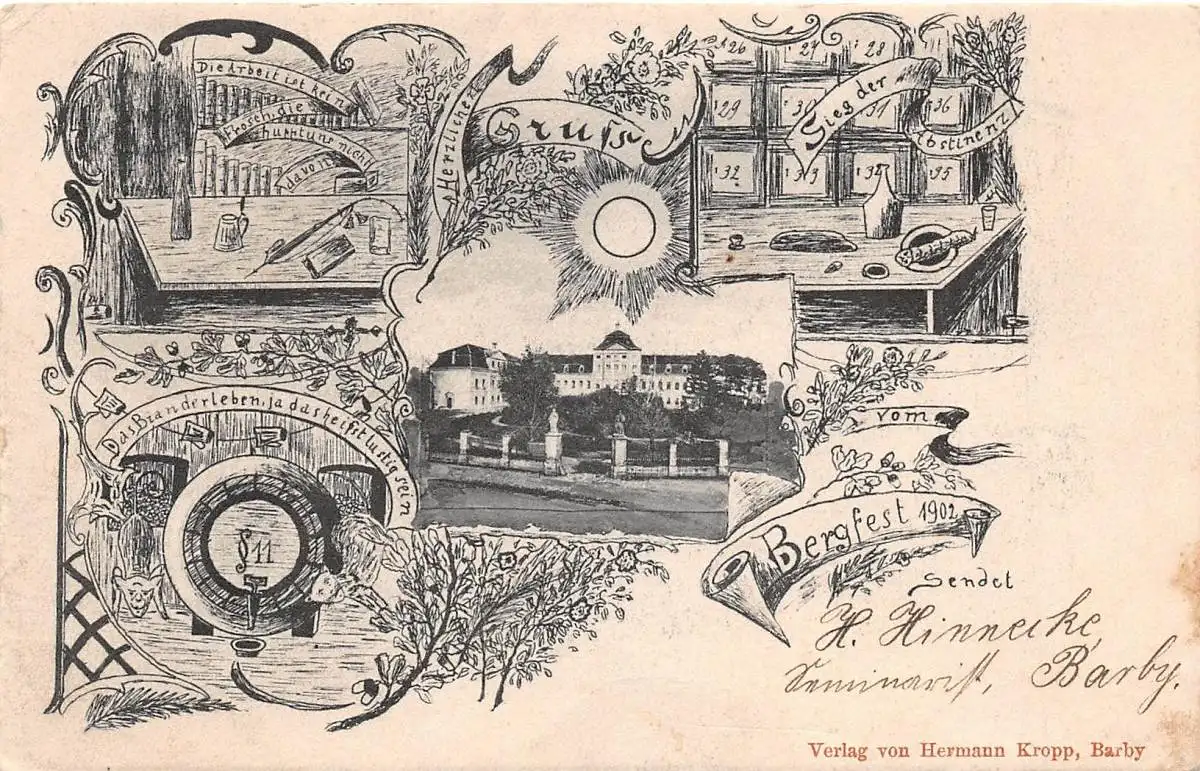 Die Arbeit ist kein
Frosch, die
uns nicht
davon
Herzlichen
Gruss
26 28
29 30 31 36
32 33 35
Sieg der
Abstinenz
Das Branderleben, ja das heißt lustig sein
§ 11
vom
Bergfest 1902
sendet
H. Hinnecke,
Seminarist, Barby.
Verlag von Hermann Kropp, Barby